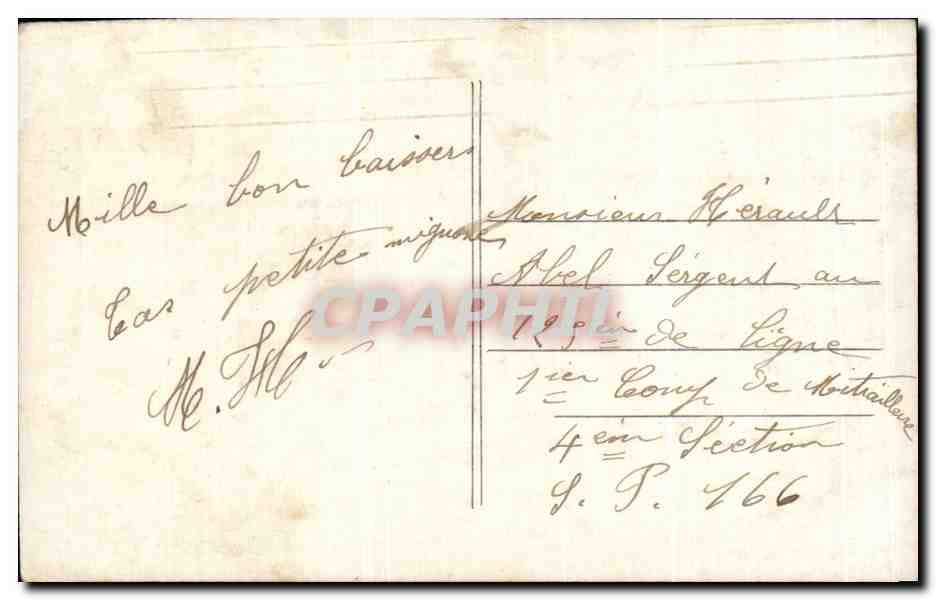 Mille bon baisser
tas petite mignone
M. H.
Monsieur Hérault
Abel Sérgent au
129 èm de ligne
1 ier Comp de Mitrailleuse
4 èm Séction
S. P. 166
CPAPHIL